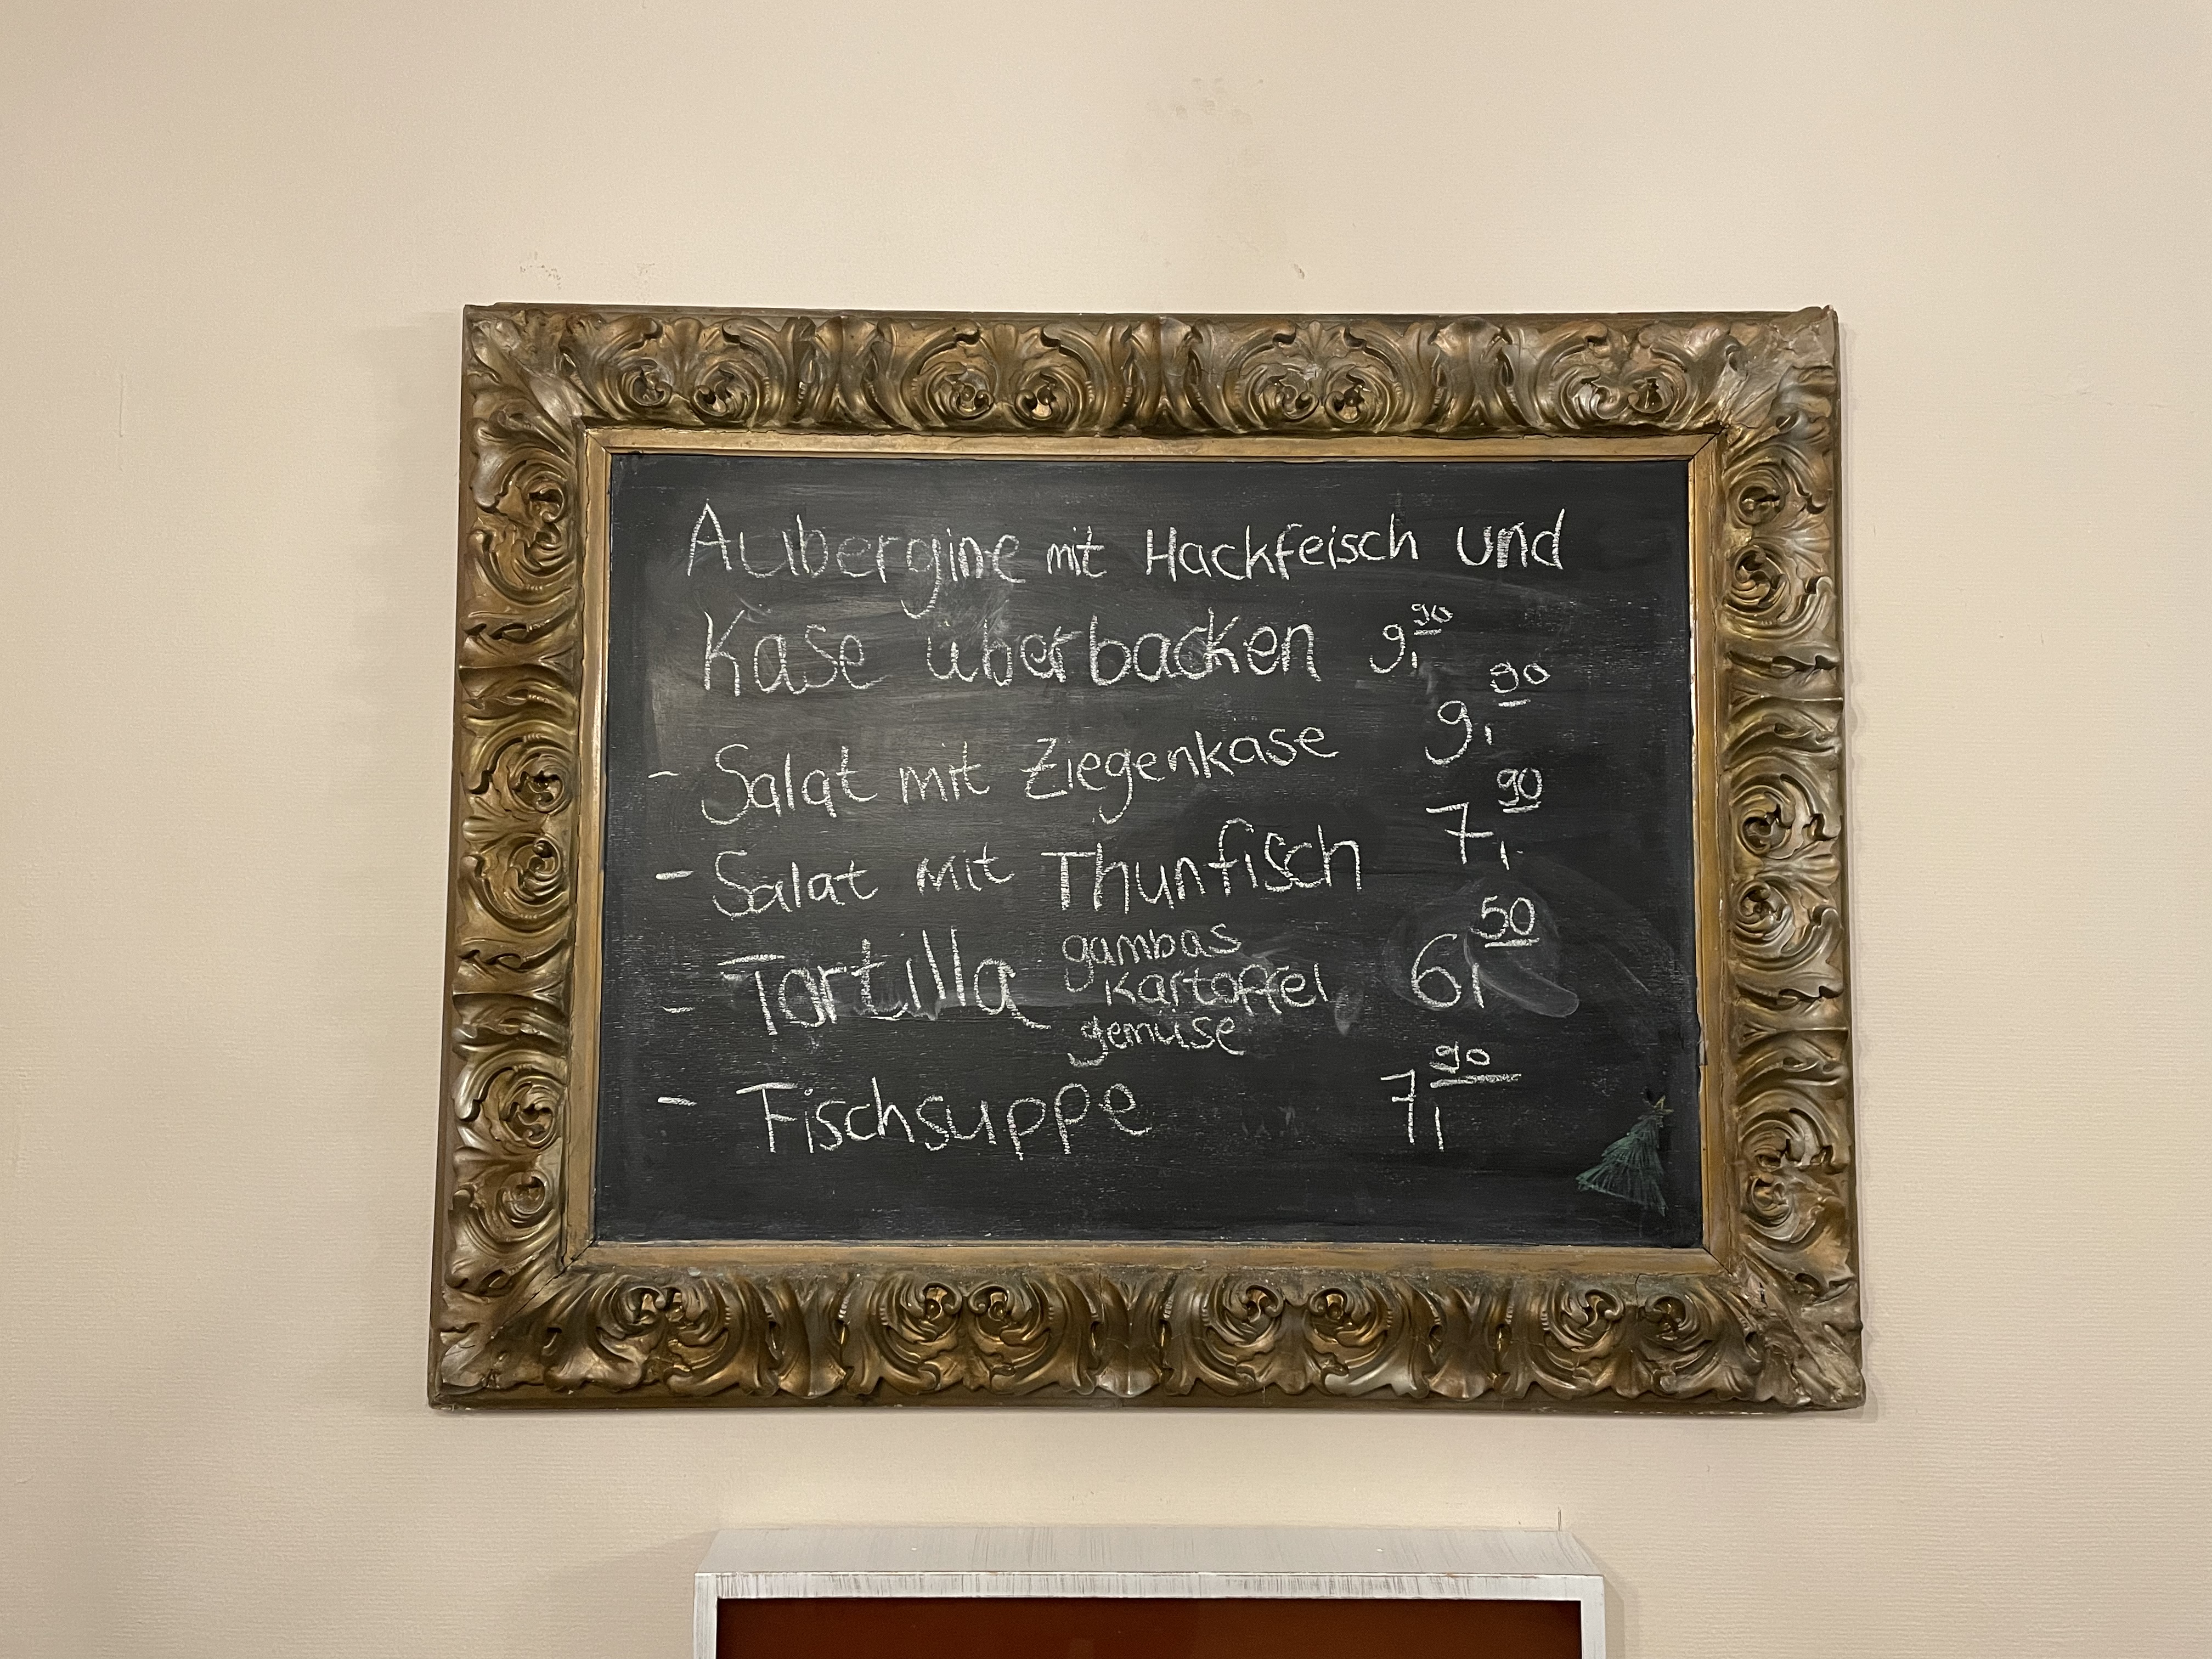 Aubergine mit Hackfeisch und
Kase überbacken 9,90
- Salat mit Ziegenkase 9,90
- Salat mit Thunfisch 7,90
- Tortilla gambas
kartoffel 6,50
gemuse
- Fischsuppe 7,90